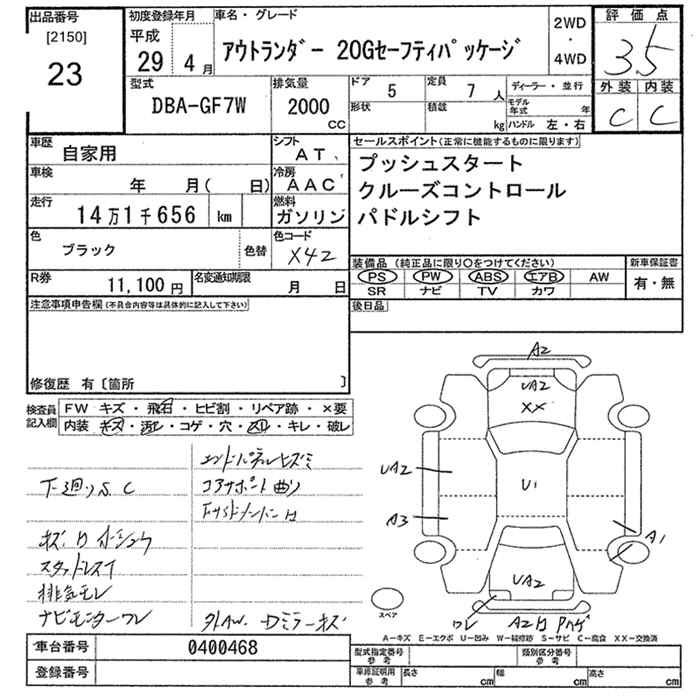 出品番号
[2150]
23
初度登録年月
平成
29 4月
車名・グレード
アウトランダー 20Gセーフティパッケージ
2WD
・
4WD
評価点
3.5
外装 内装
C C
型式
DBA-GF7W
排気量
2000
CC
ドア
5
定員
7人
形状
積載
kg
ディーラー・並行
モデル年式 年
ハンドル 左・右
車歴
自家用
シフト
AT
車検
年 月( 日)
冷房
AAC
走行
14万1千656 km
燃料
ガソリン
色
ブラック
色替
色コード
X42
R券
11,100円
名変通知期限
月 日
セールスポイント(正常に機能するものに限ります)
プッシュスタート
クルーズコントロール
パドルシフト
装備品(純正品に限り〇をつけてください)
PS PW ABS エアB AW
SR ナビ TV カワ
新車保証書
有・無
後日品
注意事項申告欄(不具合内容等は具体的に記入して下さい)
修復歴 有〔箇所 〕
検査員
記入欄
FW キズ・飛石・ヒビ割・リペア跡・×要
内装 キズ・汚レ・コゲ・穴・スレ・キレ・破レ
エンドパネルヒズミ
下廻りS.C
コアサポート曲り
スタッドレス
排気モレ
ナビモニターワレ
A2
UA2
XX
UA2
U1
A3
A1
UA2
ワレ
スペア
A-キズ E-エクボ U-凹み W-補修跡 S-サビ C-腐食 XX-交換済
車台番号
0400468
登録番号
型式指定番号
参考
類別区分番号
参考
車庫証明用
参考
長さ cm
幅 cm
高さ cm